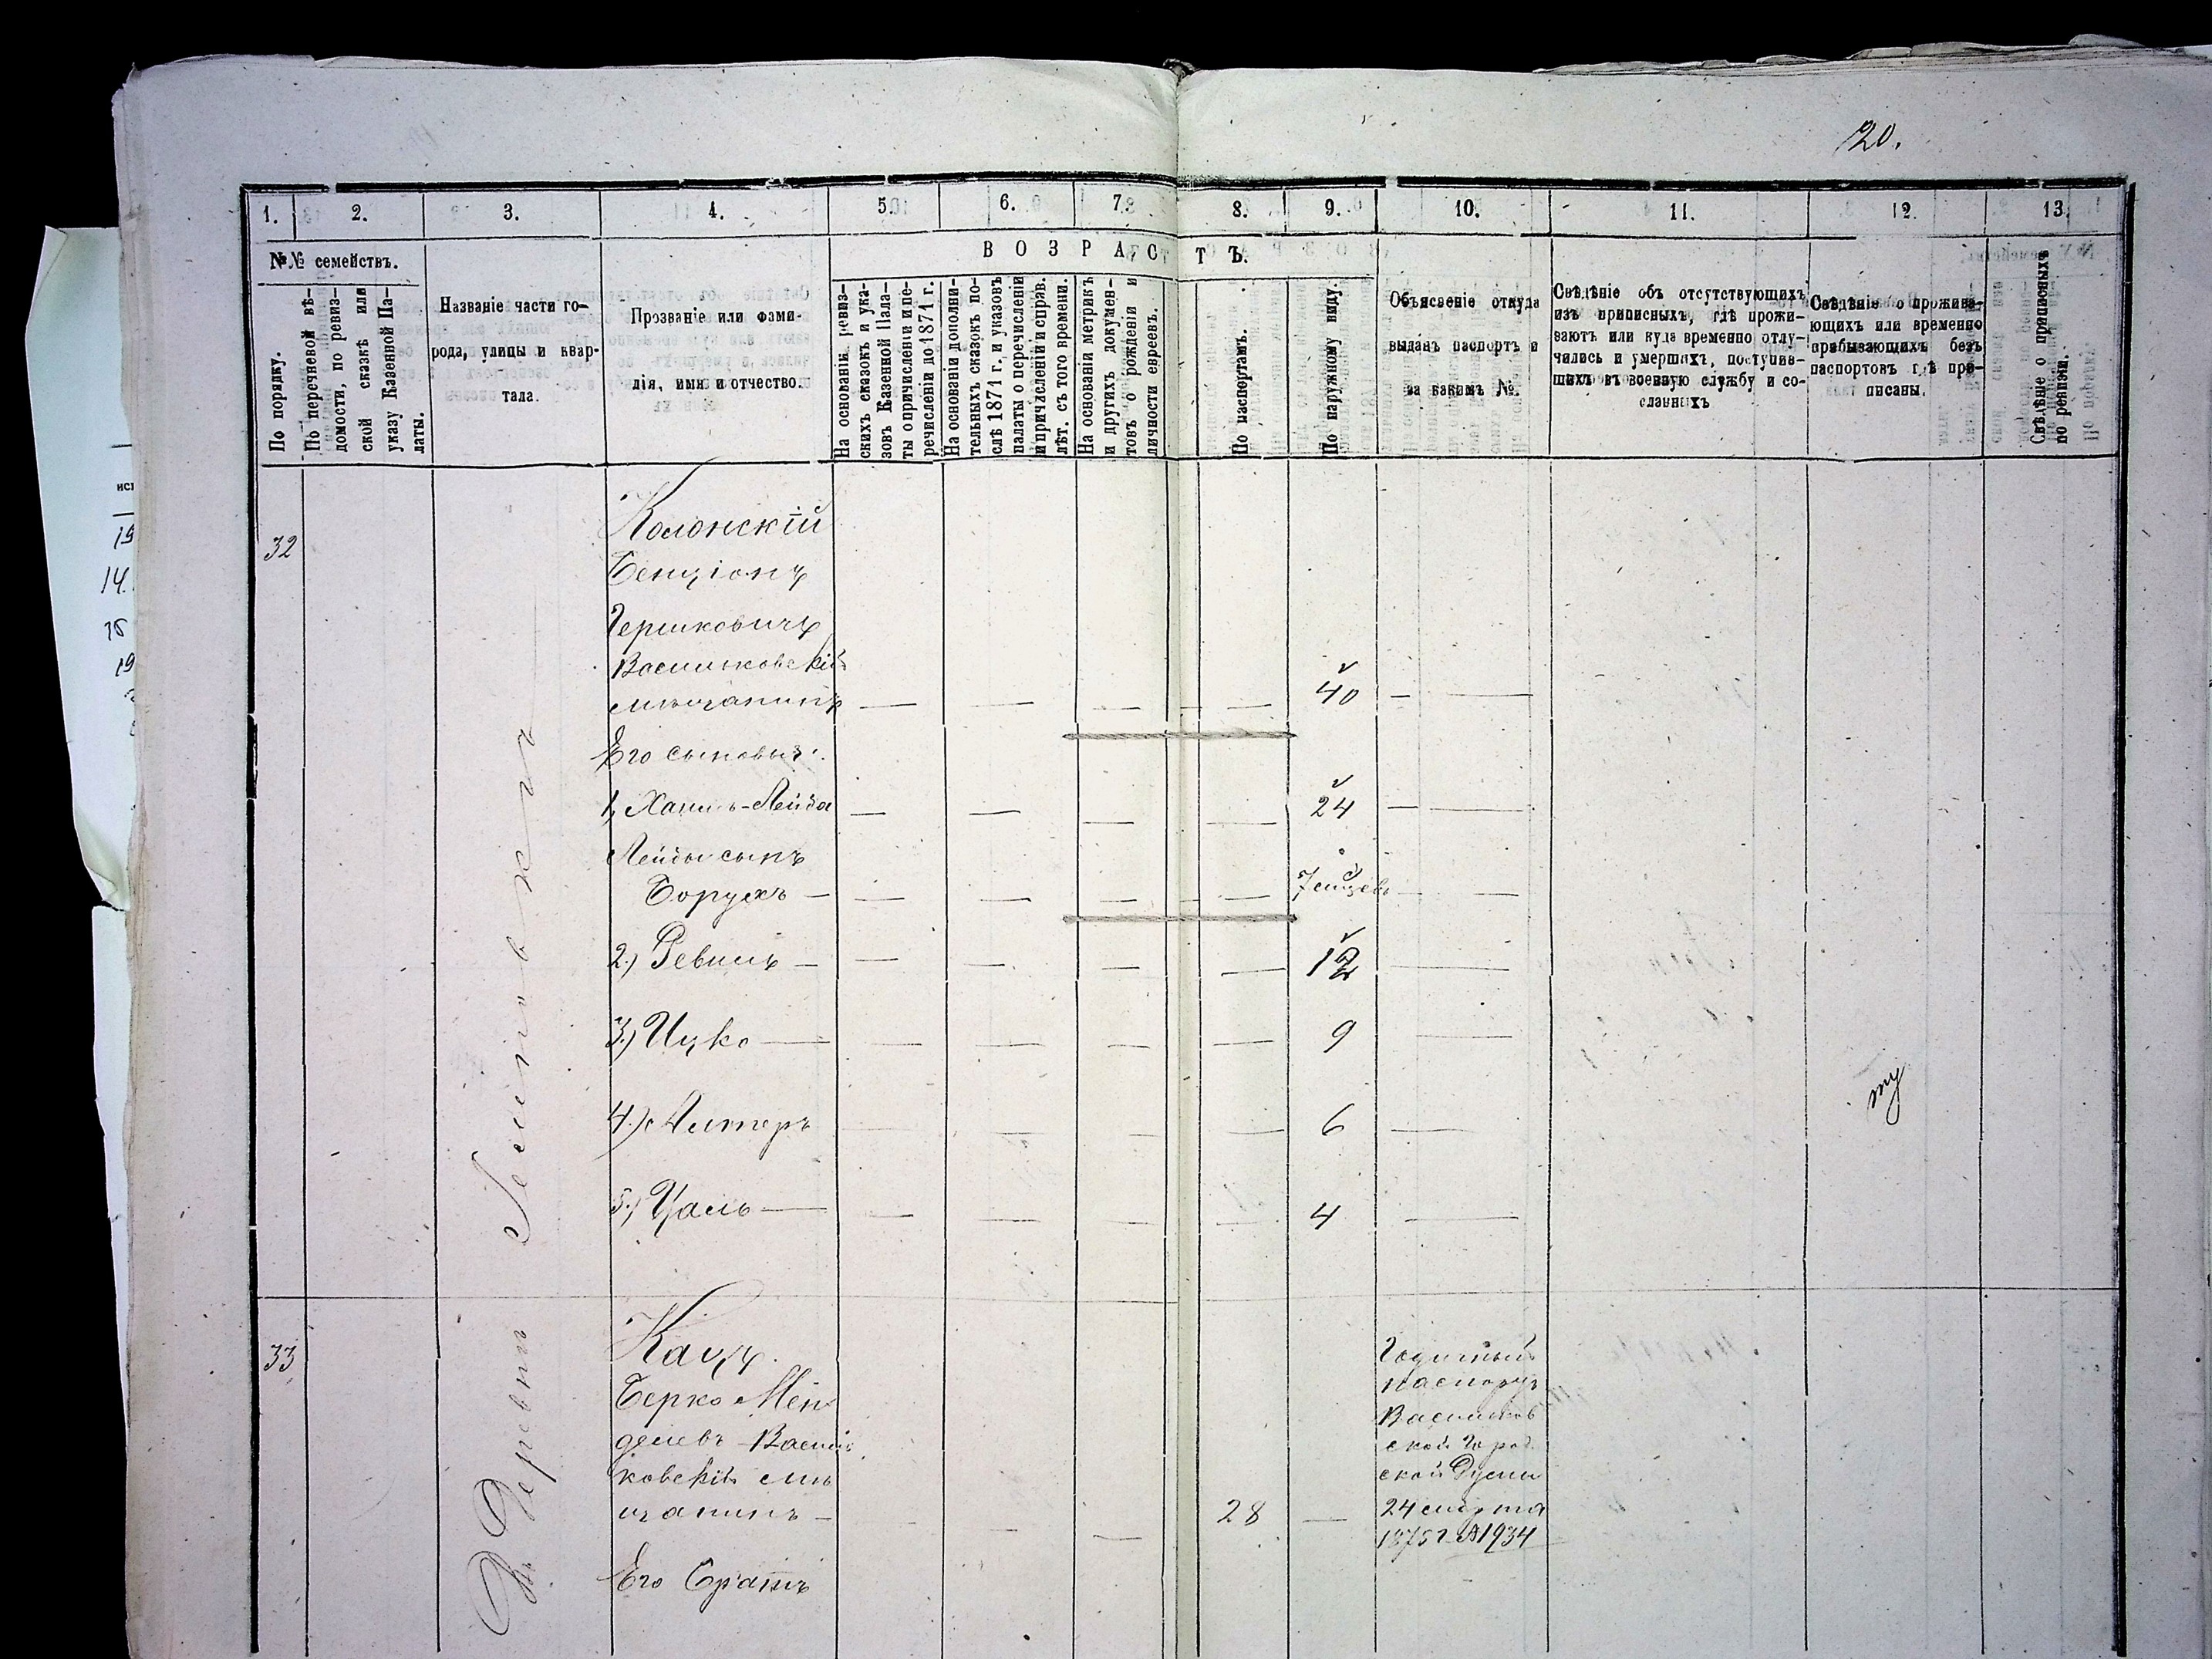 20.
1. 2. 3. 4. 5. 6. 7. 8. 9. 10. 11. 12. 13.
№№ семействъ.
ВОЗРАСТЪ.
По порядку.
По перечневой вѣ-
домости, по ревиз-
ской сказкѣ или
указу Казенной Па-
латы.
Названіе части го-
рода, улицы и квар-
тала.
Прозваніе или фами-
лія, имя и отчество.
На основаніи ревиз-
скихъ сказокъ и ука-
зовъ Казенной Пала-
ты о причисленіи и пе-
речисленіи до 1871 г.
На основаніи дополни-
тельныхъ сказокъ по-
слѣ 1871 г. и указовъ
палаты о перечисленіи
и причисленіи и справ.
лѣт. съ того времени.
На основаніи метрикъ
и другихъ докумен-
товъ о рожденіи и
личности евреевъ.
По паспортамъ.
По наружному виду.
Объясненіе откуда
выданъ паспортъ и
за какимъ №.
Свѣдѣніе объ отсутствующихъ
изъ приписныхъ, гдѣ прожи-
ваютъ или куда временно отлу-
чились и умершихъ, поступив-
шихъ въ военную службу и со-
сланныхъ
Свѣдѣніе о прожива-
ющихъ или временно
пребывающихъ безъ
паспортовъ гдѣ при-
писаны.
Свѣдѣніе о приписныхъ
по ревизіи.
32
Колонскій
Бенціонъ
Гершковичъ
Васильковскій
мѣщанинъ — — — — 40 — —
Его сыновья:
1, Хаимъ-Лейба — — — — 24 — —
Лейбы сынъ
Борухъ — — — — — 7 мѣсцевъ — —
2.) Ревинъ — — — — — 12 —
3.) Ицко — — — — — 9 —
4.) Алтеръ — — — — 6 —
5.) Цаль — — — — — 4 —
Въ Деревни
33
Кацъ.
Берко Мен
делевъ Василь
ковскій мѣ
щанинъ — — — — 28 —
Его Братъ
Годичный
паспортъ
Васильков
ской Город
ской Думы
24 марта
1875 г. №1934